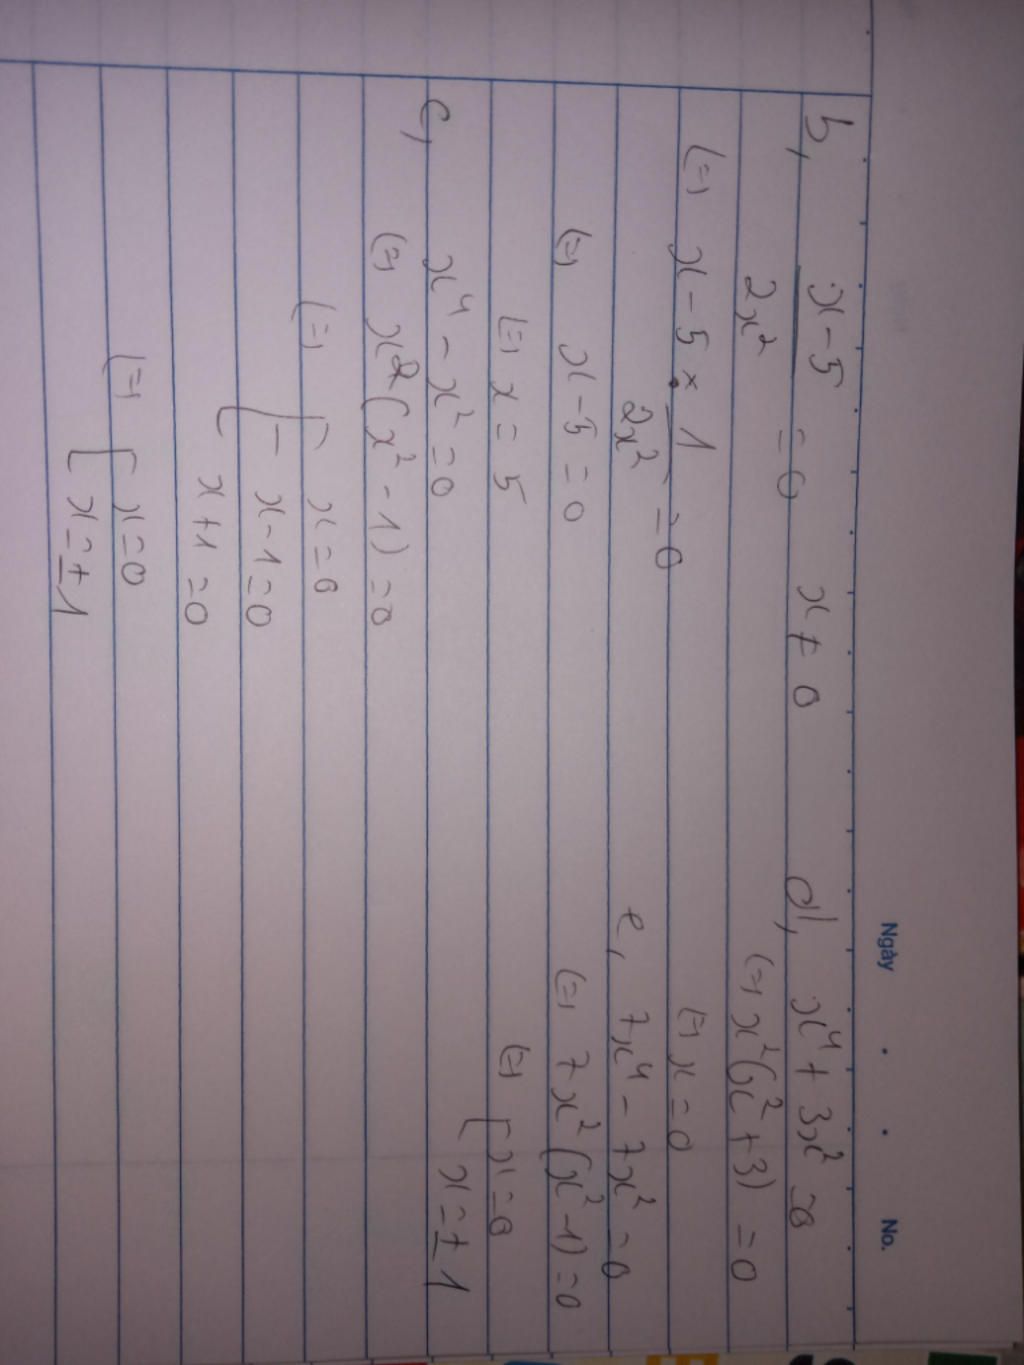 Ngày . . No.
b, (x-5)/(2x²) = 0 x ≠ 0
(=) x - 5 × 1/(2x²) = 0
(=) x - 5 = 0
(=) x = 5
c, x⁴ - x² = 0
(=) x²(x² - 1) = 0
(=) [ x = 0
x - 1 = 0
x + 1 = 0
(=) [ x = 0
x = ± 1
d, x⁴ + 3x² = 0
(=) x²(x² + 3) = 0
(=) x = 0
e, 7x⁴ - 7x² = 0
(=) 7x²(x² - 1) = 0
(=) [ x = 0
x = ± 1